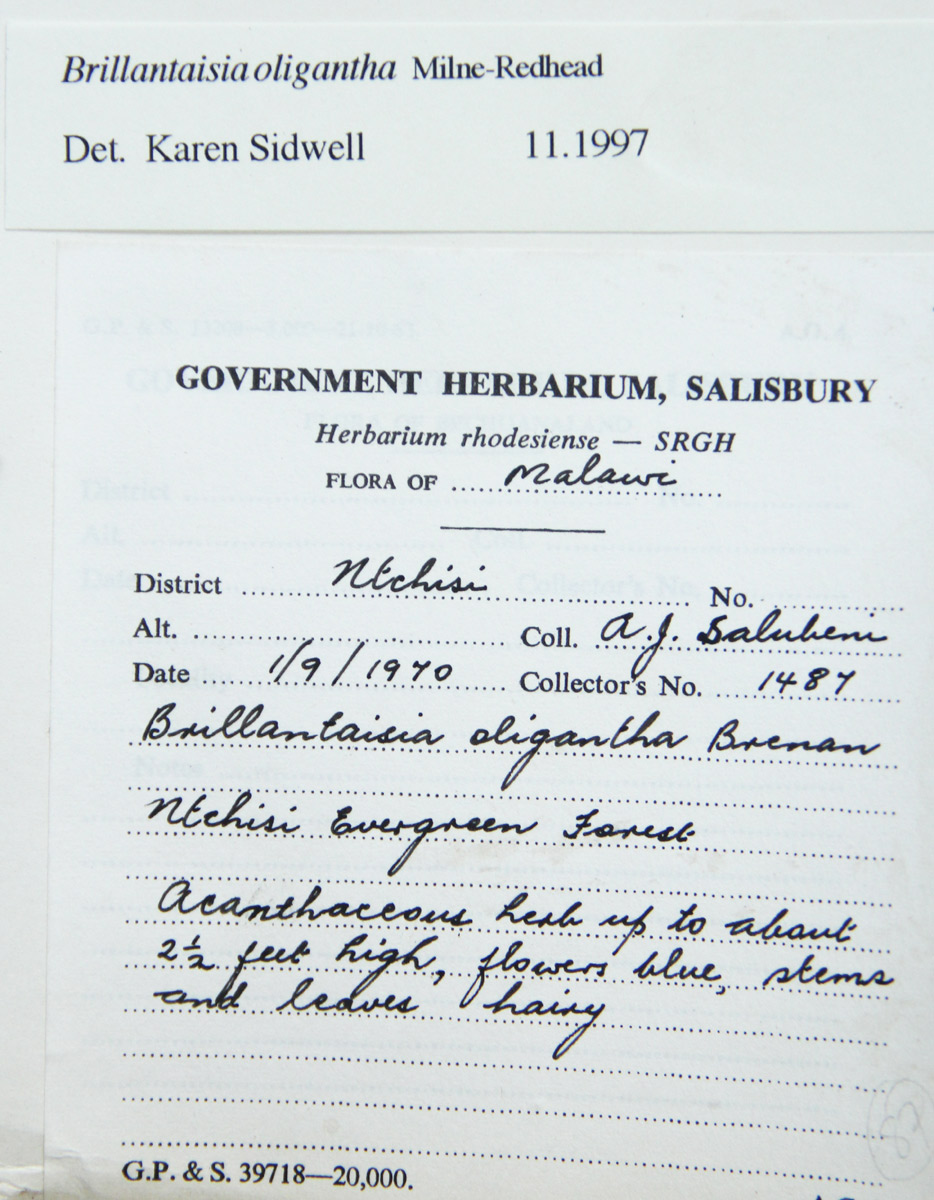 Brillantaisia oligantha Milne-Redhead
Det. Karen Sidwell 11.1997
GOVERNMENT HERBARIUM, SALISBURY
Herbarium rhodesiense — SRGH
FLORA OF Malawi
District Ntchisi No.
Alt. Coll. A.J. Salubeni
Date 1/9/1970 Collector's No. 1487
Brillantaisia oligantha Brenan
Ntchisi Evergreen Forest
Acanthaceous herb up to about
2½ feet high, flowers blue, stems
and leaves hairy
G.P. & S. 39718—20,000.